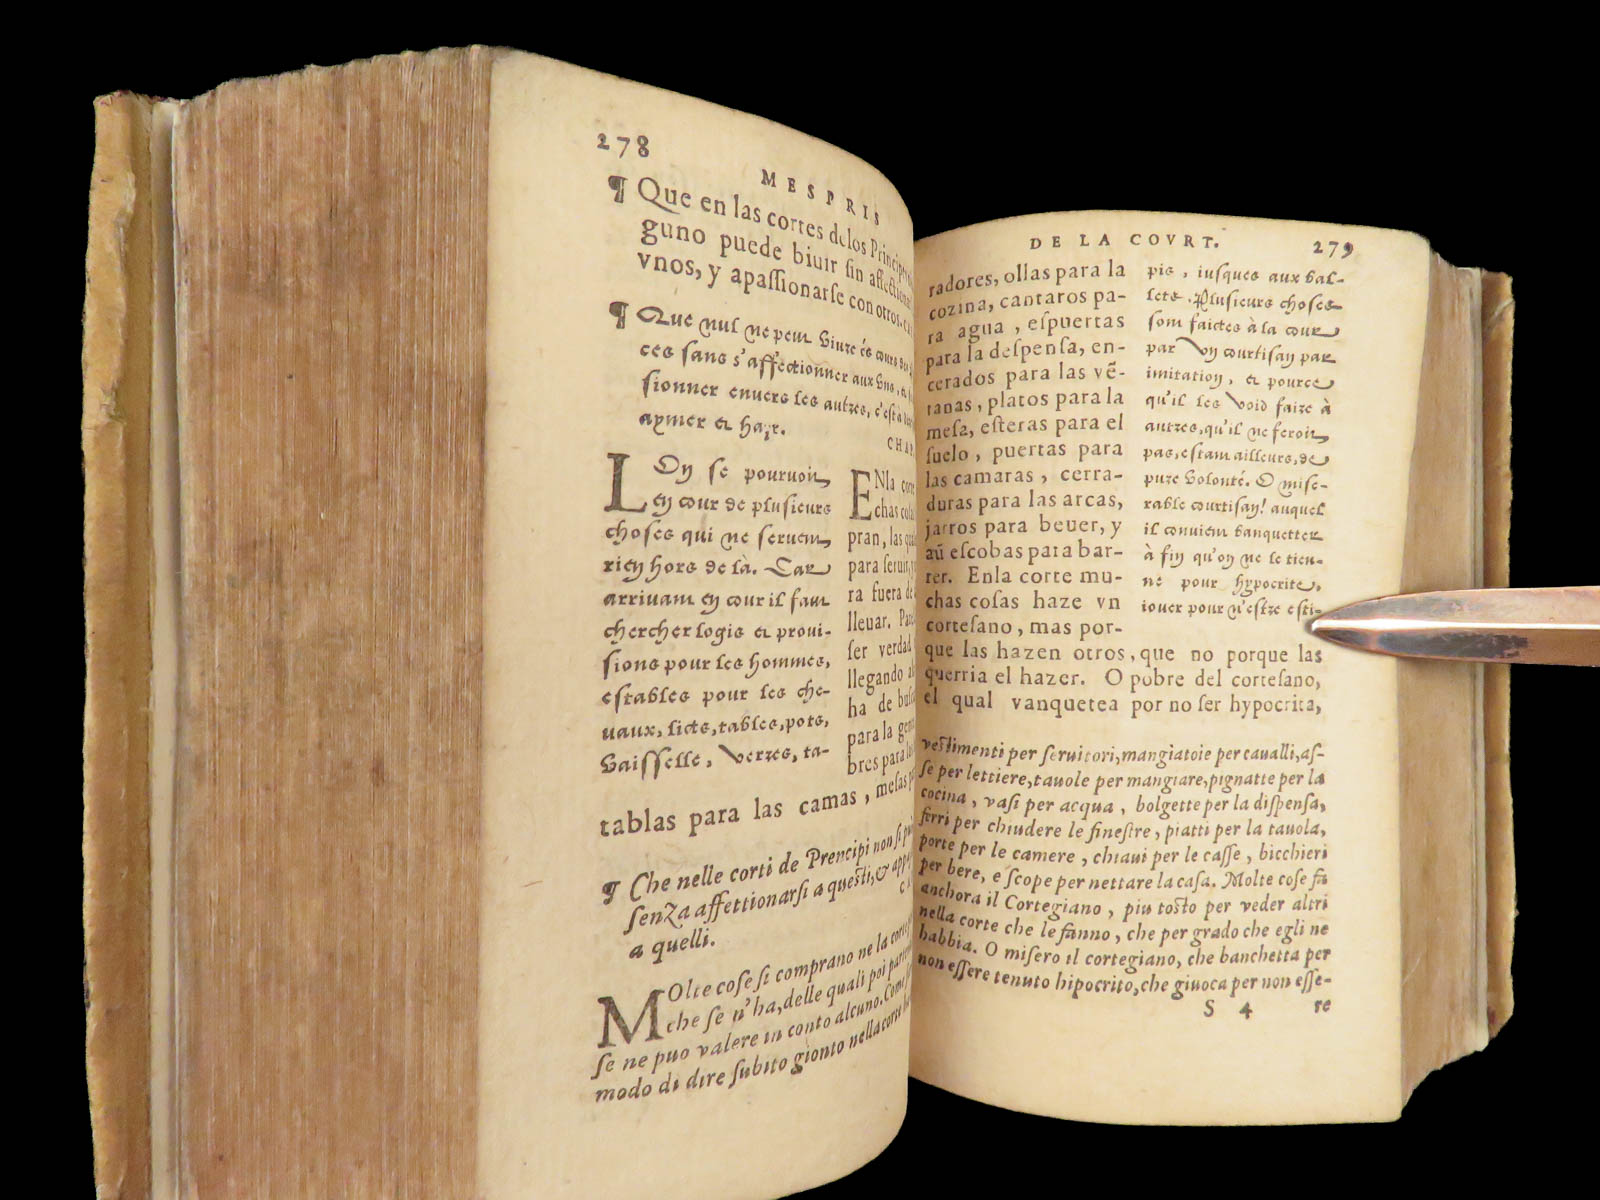 278
MESPRIS
¶ Que en las cortes delos Principes
guno puede biuir sin affectionar
vnos, y apassionarse con otros.
¶ Que nul ne peut viure és cours
ces sans s'affectionner aux vns, &
sionner enuers les autres, c'est à
aymer & hayr.
CHAP.
LOn se pouruoit
en cour de plusieurs
choses qui ne seruent
rien hors de là. Car
arriuant en cour il faut
chercher logis & proui-
sions pour les hommes,
estables pour les che-
uaux, licts, tables, pots,
vaisselle, verres, ta-
ENla corte
chas cosas
pran, las
para seruir,
ra fuera de
lleuar. Para
ser verdad
llegando
ha de
para la
bres para
tablas para las camas, mesas
¶ Che nelle corti de Prencipi non si può
senza affettionarsi a questi, &
a quelli.
MOlte cose si comprano ne la corte
che se n'ha, delle quali poi
se ne puo valere in conto alcuno. Come
modo di dire subito gionto nella corte
DE LA COVRT.
279
radores, ollas para la
cozina, cantaros pa-
ra agua, espuertas
para la despensa, en-
cerados para las vẽ-
tanas, platos para la
mesa, esteras para el
suelo, puertas para
las camaras, cerra-
duras para las arcas,
jarros para beuer, y
aũ escobas para bar-
rer. Enla corte mu-
chas cosas haze vn
cortesano, mas por-
que las hazen otros, que no porque las
querria el hazer. O pobre del cortesano,
el qual vanquetea por no ser hypocrita,
pis, iusques aux bal-
lets. Plusieurs choses
sont faictes à la cour
par vn courtisan par
imitation, & pource
qu'il les void faire à
autres, qu'il ne feroit
pas, estant ailleurs, de
pure volonté. O mise-
rable courtisan! auquel
il conuient banquetter
à fin qu'on ne le tien-
ne pour hypocrite,
iouer pour n'estre esti-
vestimenti per seruitori, mangiatoie per caualli, as-
se per lettiere, tauole per mangiare, pignatte per la
cocina, vasi per acqua, bolgette per la dispensa,
ferri per chiudere le finestre, piatti per la tauola,
porte per le camere, chiaui per le casse, bicchieri
per bere, e scope per nettare la casa. Molte cose fa
anchora il Cortegiano, piu tosto per veder altri
nella corte che le fanno, che per grado che egli ne
habbia. O misero il cortegiano, che banchetta per
non essere tenuto hipocrito, che giuoca per non esse-
S 4
re